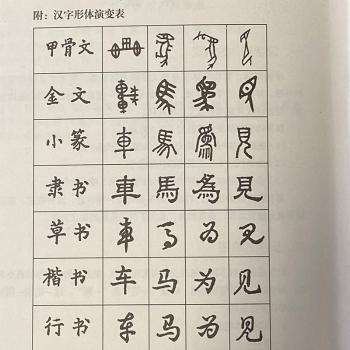 附：汉字形体演变表
甲骨文
金文
小篆 車 馬 爲 見
隶书 車 馬 為 見
草书 车 马 为 见
楷书 车 马 为 见
行书 车 马 为 见